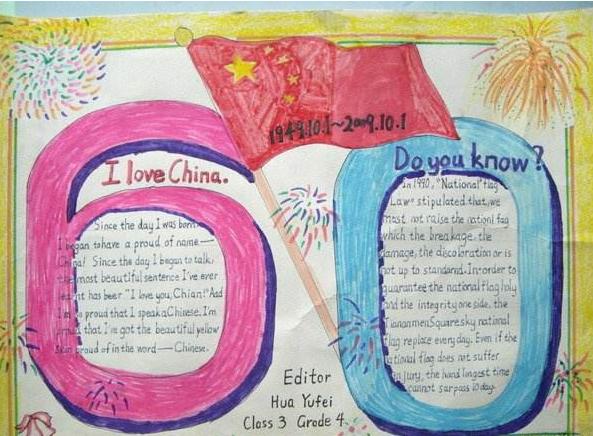 1949.10.1~2009.10.1
I love China.
Since the day I was born
I began to have a proud of name —
China! Since the day I began to talk,
the most beautiful sentence I've ever
learnt has beer "I love you, Chian!" And
I'm so proud that I speak a Chinese. I'm
proud that I've got the beautiful yellow
skin proud of in the word — Chinese.
Do you know?
In 1990, "National flag
Law" stipulated that, we
most not raise the nationl fag
which the breakage, the
damage, the discoloration or is
not up to standared. In order to
guarantee the national flag holy
and the integrity one side, the
Tiananmen Square sky national
flag replace every day. Even if the
national flag does not suffer
injury, the hand longest time
cannot surpass 10 day.
Editor
Hua Yufei
Class 3 Grade 4